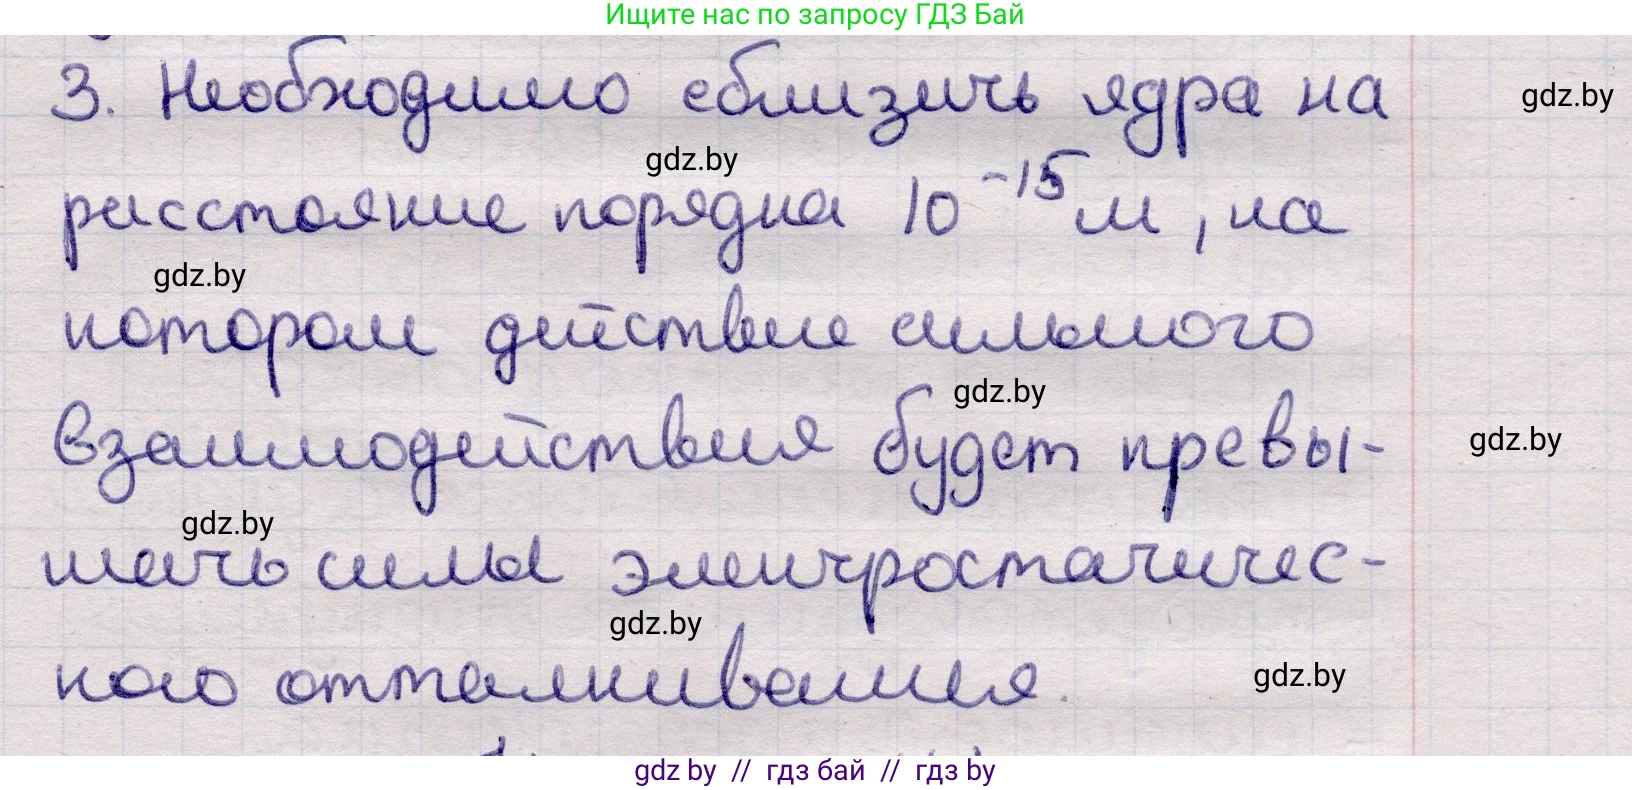 Ищите нас по запросу ГДЗ Бай
3. Необходимо сблизить ядра на
gdz.by
gdz.by
расстояние порядка 10⁻¹⁵ м, на
gdz.by
котором действие сильного
gdz.by
взаимодействия будет превы-
gdz.by
gdz.by
шать силы электростатичес-
gdz.by
кого отталкивания.
gdz.by
gdz by // гдз бай // гдз by